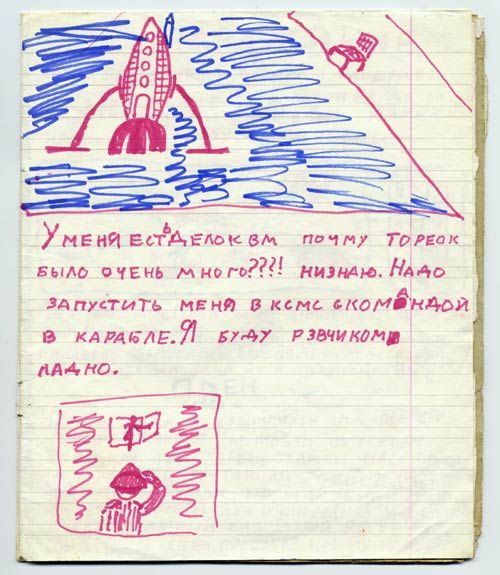 У МЕНЯ ЕСТЬ ДЕЛОК ВМ ПОЧМУ ТОРЕОК
БЫЛО ОЧЕНЬ МНОГО???! НИЗНАЮ. НАДО
ЗАПУСТИТЬ МЕНЯ В КСМС СКОМАНДОЙ
В КАРАБЛЕ. Я БУДУ РЗВЧИКОМ
ЛАДНО.